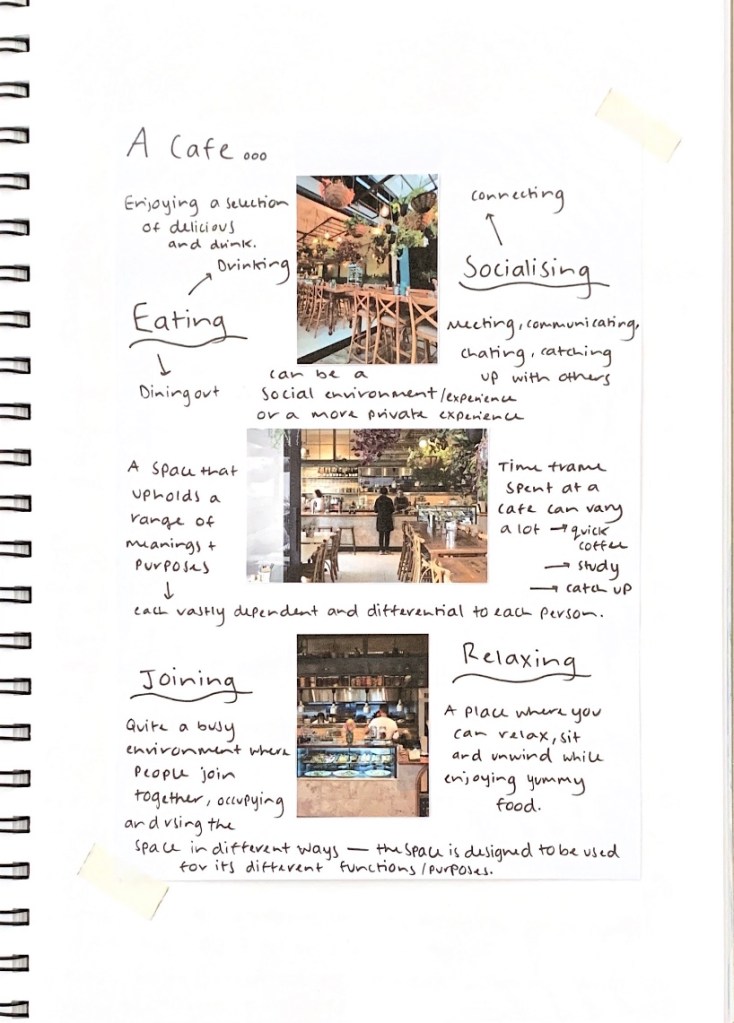 A Cafe...
Enjoying a selection
of delicious
and drink.
Drinking
Eating
Dining out
connecting
Socialising
Meeting, communicating,
chating, catching
up with others
can be a
Social environment/experience
or a more private experience
A space that
upholds a
range of
meanings +
purposes
each vastly dependent and differential to each person.
Time frame
spent at a
cafe can vary
a lot → quick
coffee
→ study
→ catch up
Joining
Quite a busy
environment where
people join
together, occupying
and using the
space in different ways — the space is designed to be used
for its different functions/purposes.
Relaxing
A place where you
can relax, sit
and unwind while
enjoying yummy
food.